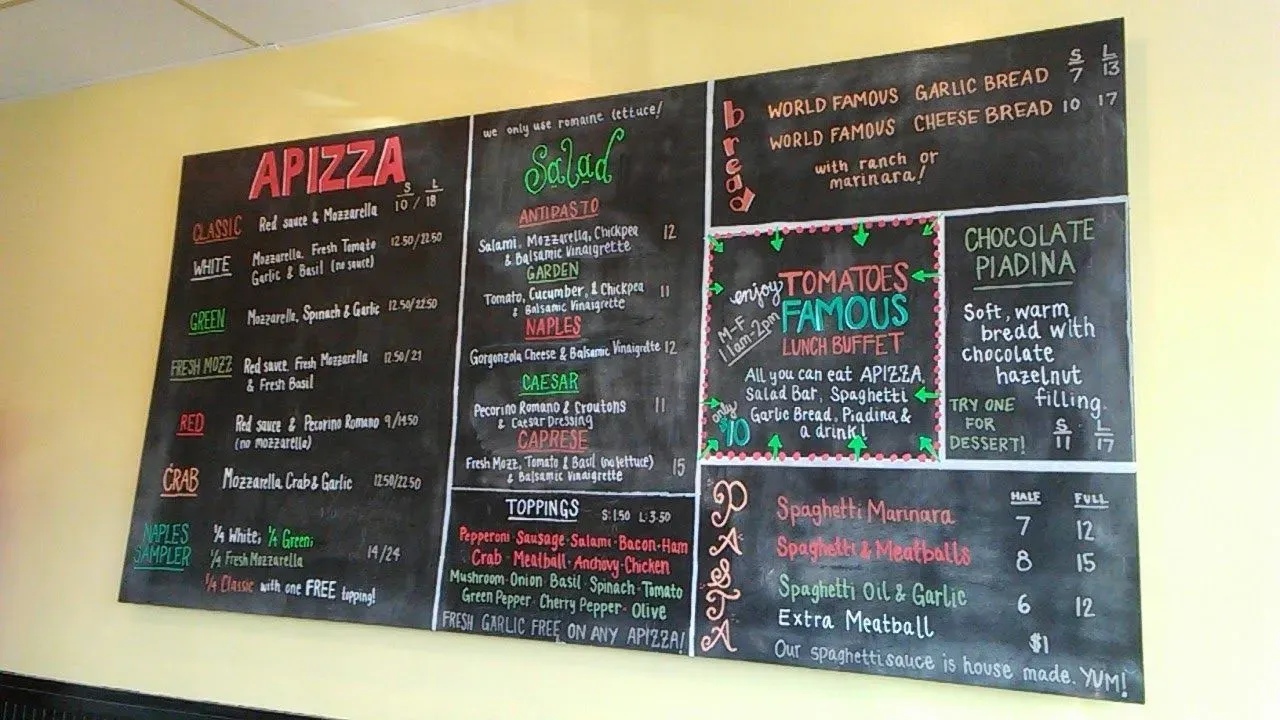 APIZZA
S L
CLASSIC Red sauce & Mozzarella 10 / 18
WHITE Mozzarella, Fresh Tomato 12.50/22.50
Garlic & Basil (no sauce)
GREEN Mozzarella, Spinach & Garlic 12.50/22.50
FRESH MOZZ Red sauce, Fresh Mozzarella 12.50/21
& Fresh Basil
RED Red sauce & Pecorino Romano 9/14.50
(no mozzarella)
CRAB Mozzarella, Crab & Garlic 12.50/22.50
NAPLES SAMPLER
1/4 White, 1/4 Green,
1/4 Fresh Mozzarella 14/24
1/4 Classic with one FREE topping!
we only use romaine lettuce!
Salad
ANTIPASTO
Salami, Mozzarella, Chickpea 12
& Balsamic Vinaigrette
GARDEN
Tomato, Cucumber, & Chickpea 11
& Balsamic Vinaigrette
NAPLES
Gorgonzola Cheese & Balsamic Vinaigrette 12
CAESAR
Pecorino Romano & Croutons 11
& Caesar Dressing
CAPRESE
Fresh Mozz, Tomato & Basil (no lettuce) 15
& Balsamic Vinaigrette
TOPPINGS S:1.50 L:3.50
Pepperoni · Sausage · Salami · Bacon · Ham
Crab · Meatball · Anchovy · Chicken
Mushroom · Onion · Basil · Spinach · Tomato
Green Pepper · Cherry Pepper · Olive
FRESH GARLIC FREE ON ANY APIZZA!
bread
S L
WORLD FAMOUS GARLIC BREAD 7 13
WORLD FAMOUS CHEESE BREAD 10 17
with ranch or
marinara!
enjoy TOMATOES
FAMOUS
LUNCH BUFFET
M-F
11am-2pm
All you can eat APIZZA,
Salad Bar, Spaghetti
Garlic Bread, Piadina &
a drink!
only
$10
CHOCOLATE
PIADINA
Soft, warm
bread with
chocolate
hazelnut
filling.
TRY ONE
FOR
DESSERT!
S L
11 17
PASTA
HALF FULL
Spaghetti Marinara 7 12
Spaghetti & Meatballs 8 15
Spaghetti Oil & Garlic 6 12
Extra Meatball $1
Our spaghetti sauce is house made. YUM!